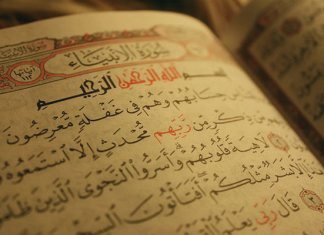 سُورَةُ الْأَنْبِيَاءِ
بِسْمِ اللَّهِ الرَّحْمَٰنِ الرَّحِيمِ
حِسَابُهُمْ وَهُمْ فِي غَفْلَةٍ مُعْرِضُونَ
مِنْ ذِكْرٍ مِنْ رَبِّهِمْ مُحْدَثٍ إِلَّا اسْتَمَعُوهُ
لَاهِيَةً قُلُوبُهُمْ وَأَسَرُّوا النَّجْوَى الَّذِينَ
بَشَرٌ مِثْلُكُمْ أَفَتَأْتُونَ
قَالَ رَبِّي يَعْلَمُ